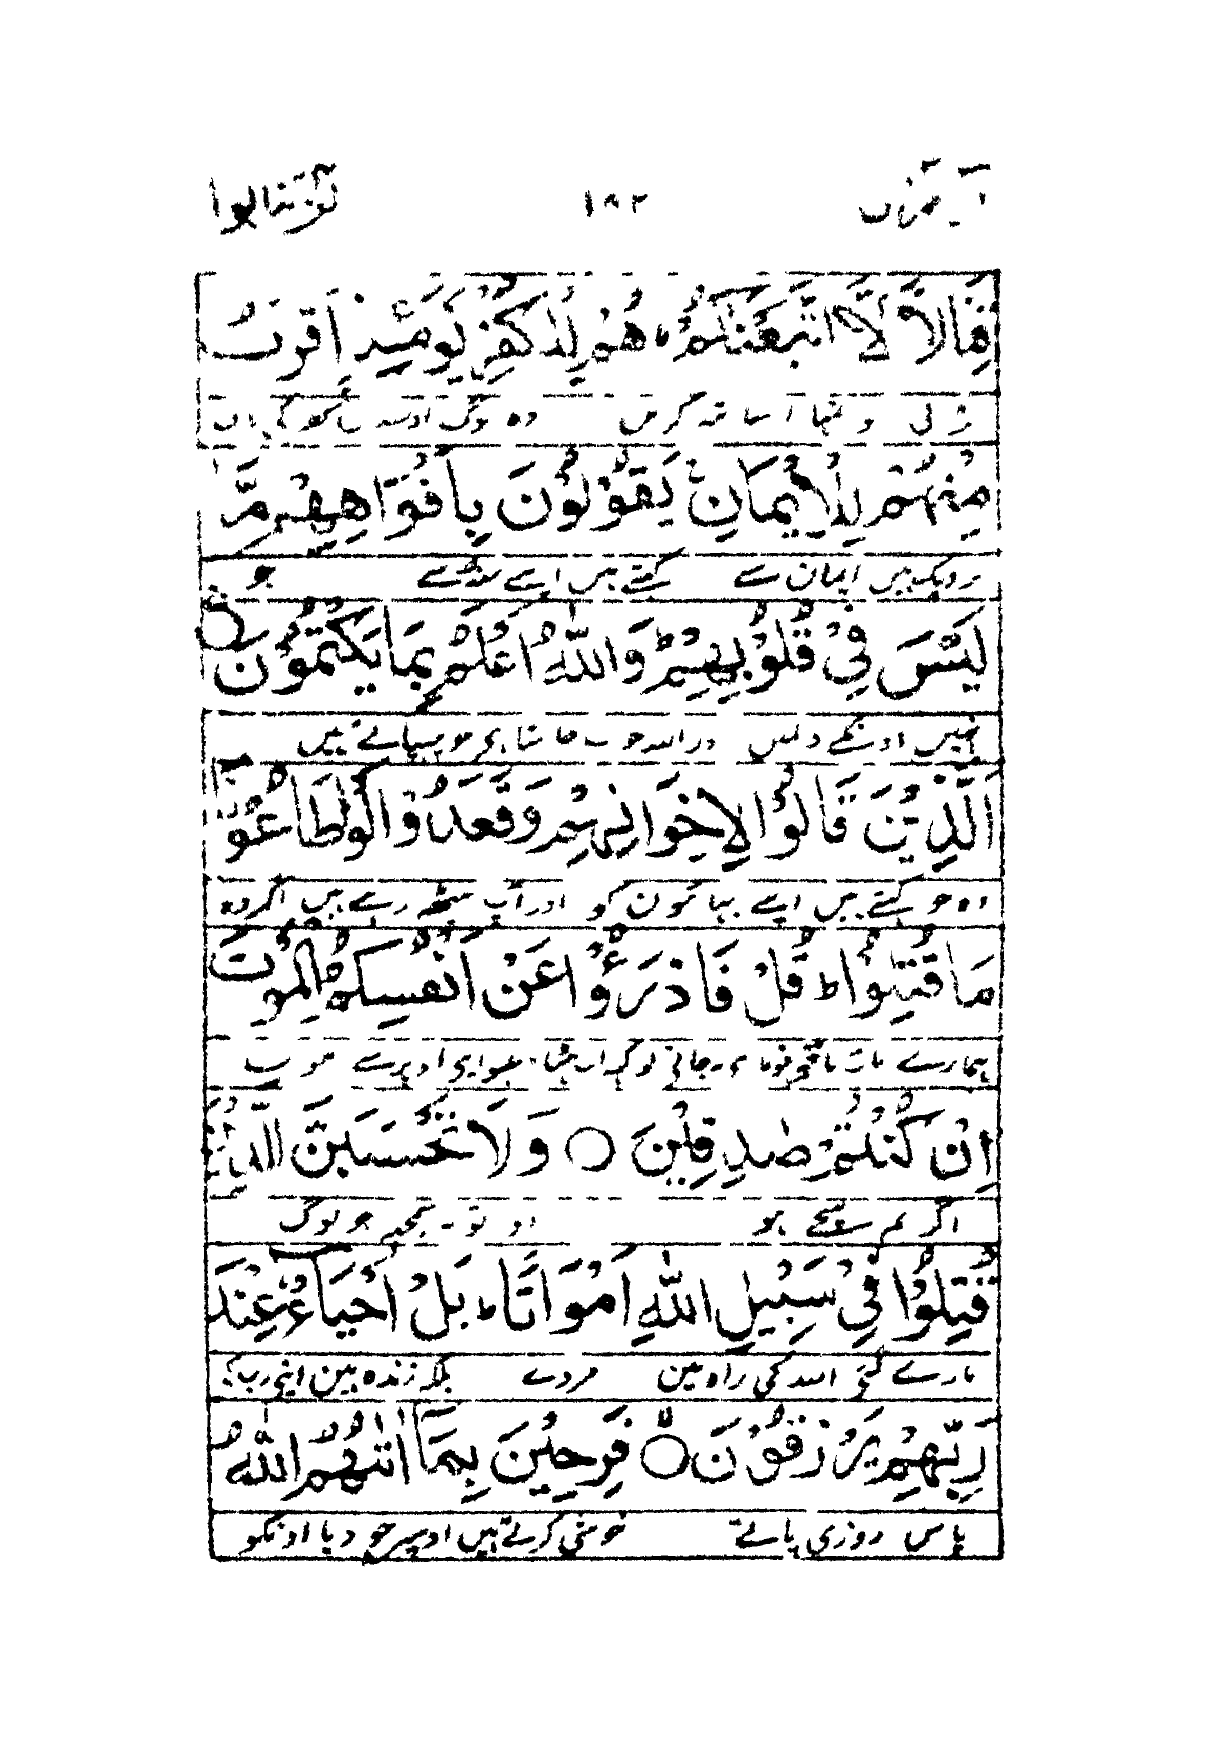 لن تنالوا ١٨٢ آل عمران
قِتَالًا لَّا اتَّبَعْنٰكُمْ ؕ هُمْ لِلْكُفْرِ يَوْمَئِذٍ اَقْرَبُ
وہ لوگ اوس
مِنْهُمْ لِلْاِيْمَانِ ۚ يَقُوْلُوْنَ بِاَفْوَاهِهِمْ مَّا
نزدیک ہیں ایمان سے کہتے ہیں اپنے مونھ سے جو
لَيْسَ فِيْ قُلُوْبِهِمْ ؕ وَاللّٰهُ اَعْلَمُ بِمَا يَكْتُمُوْنَ ○
نہیں اونکے دلمیں اور اللہ خوب جانتا ہی جو چھپاتے ہیں
اَلَّذِيْنَ قَالُوْا لِاِخْوَانِهِمْ وَقَعَدُوْا لَوْ اَطَاعُوْنَا
وہ جو کہتے ہیں اپنے بھائیون کو اور آپ بیٹھ رہے ہیں اگر وہ
مَا قُتِلُوْا ؕ قُلْ فَادْرَءُوْا عَنْ اَنْفُسِكُمُ الْمَوْتَ
ہمارے اوپر سے موت
اِنْ كُنْتُمْ صٰدِقِيْنَ ○ وَلَا تَحْسَبَنَّ الَّذِيْنَ
اگر تم سچے ہو اور تو نہ سمجھ جو لوگ
قُتِلُوْا فِيْ سَبِيْلِ اللّٰهِ اَمْوَاتًا ؕ بَلْ اَحْيَآءٌ عِنْدَ
مارے گئے اللہ کی راہ مین مردے بلکہ زندہ ہین اپنی رب کے
رَبِّهِمْ يُرْزَقُوْنَ ○ فَرِحِيْنَ بِمَآ اٰتٰىهُمُ اللّٰهُ
پاس روزی پاتے خوشی کرتے ہیں اوسپر جو دیا اونکو